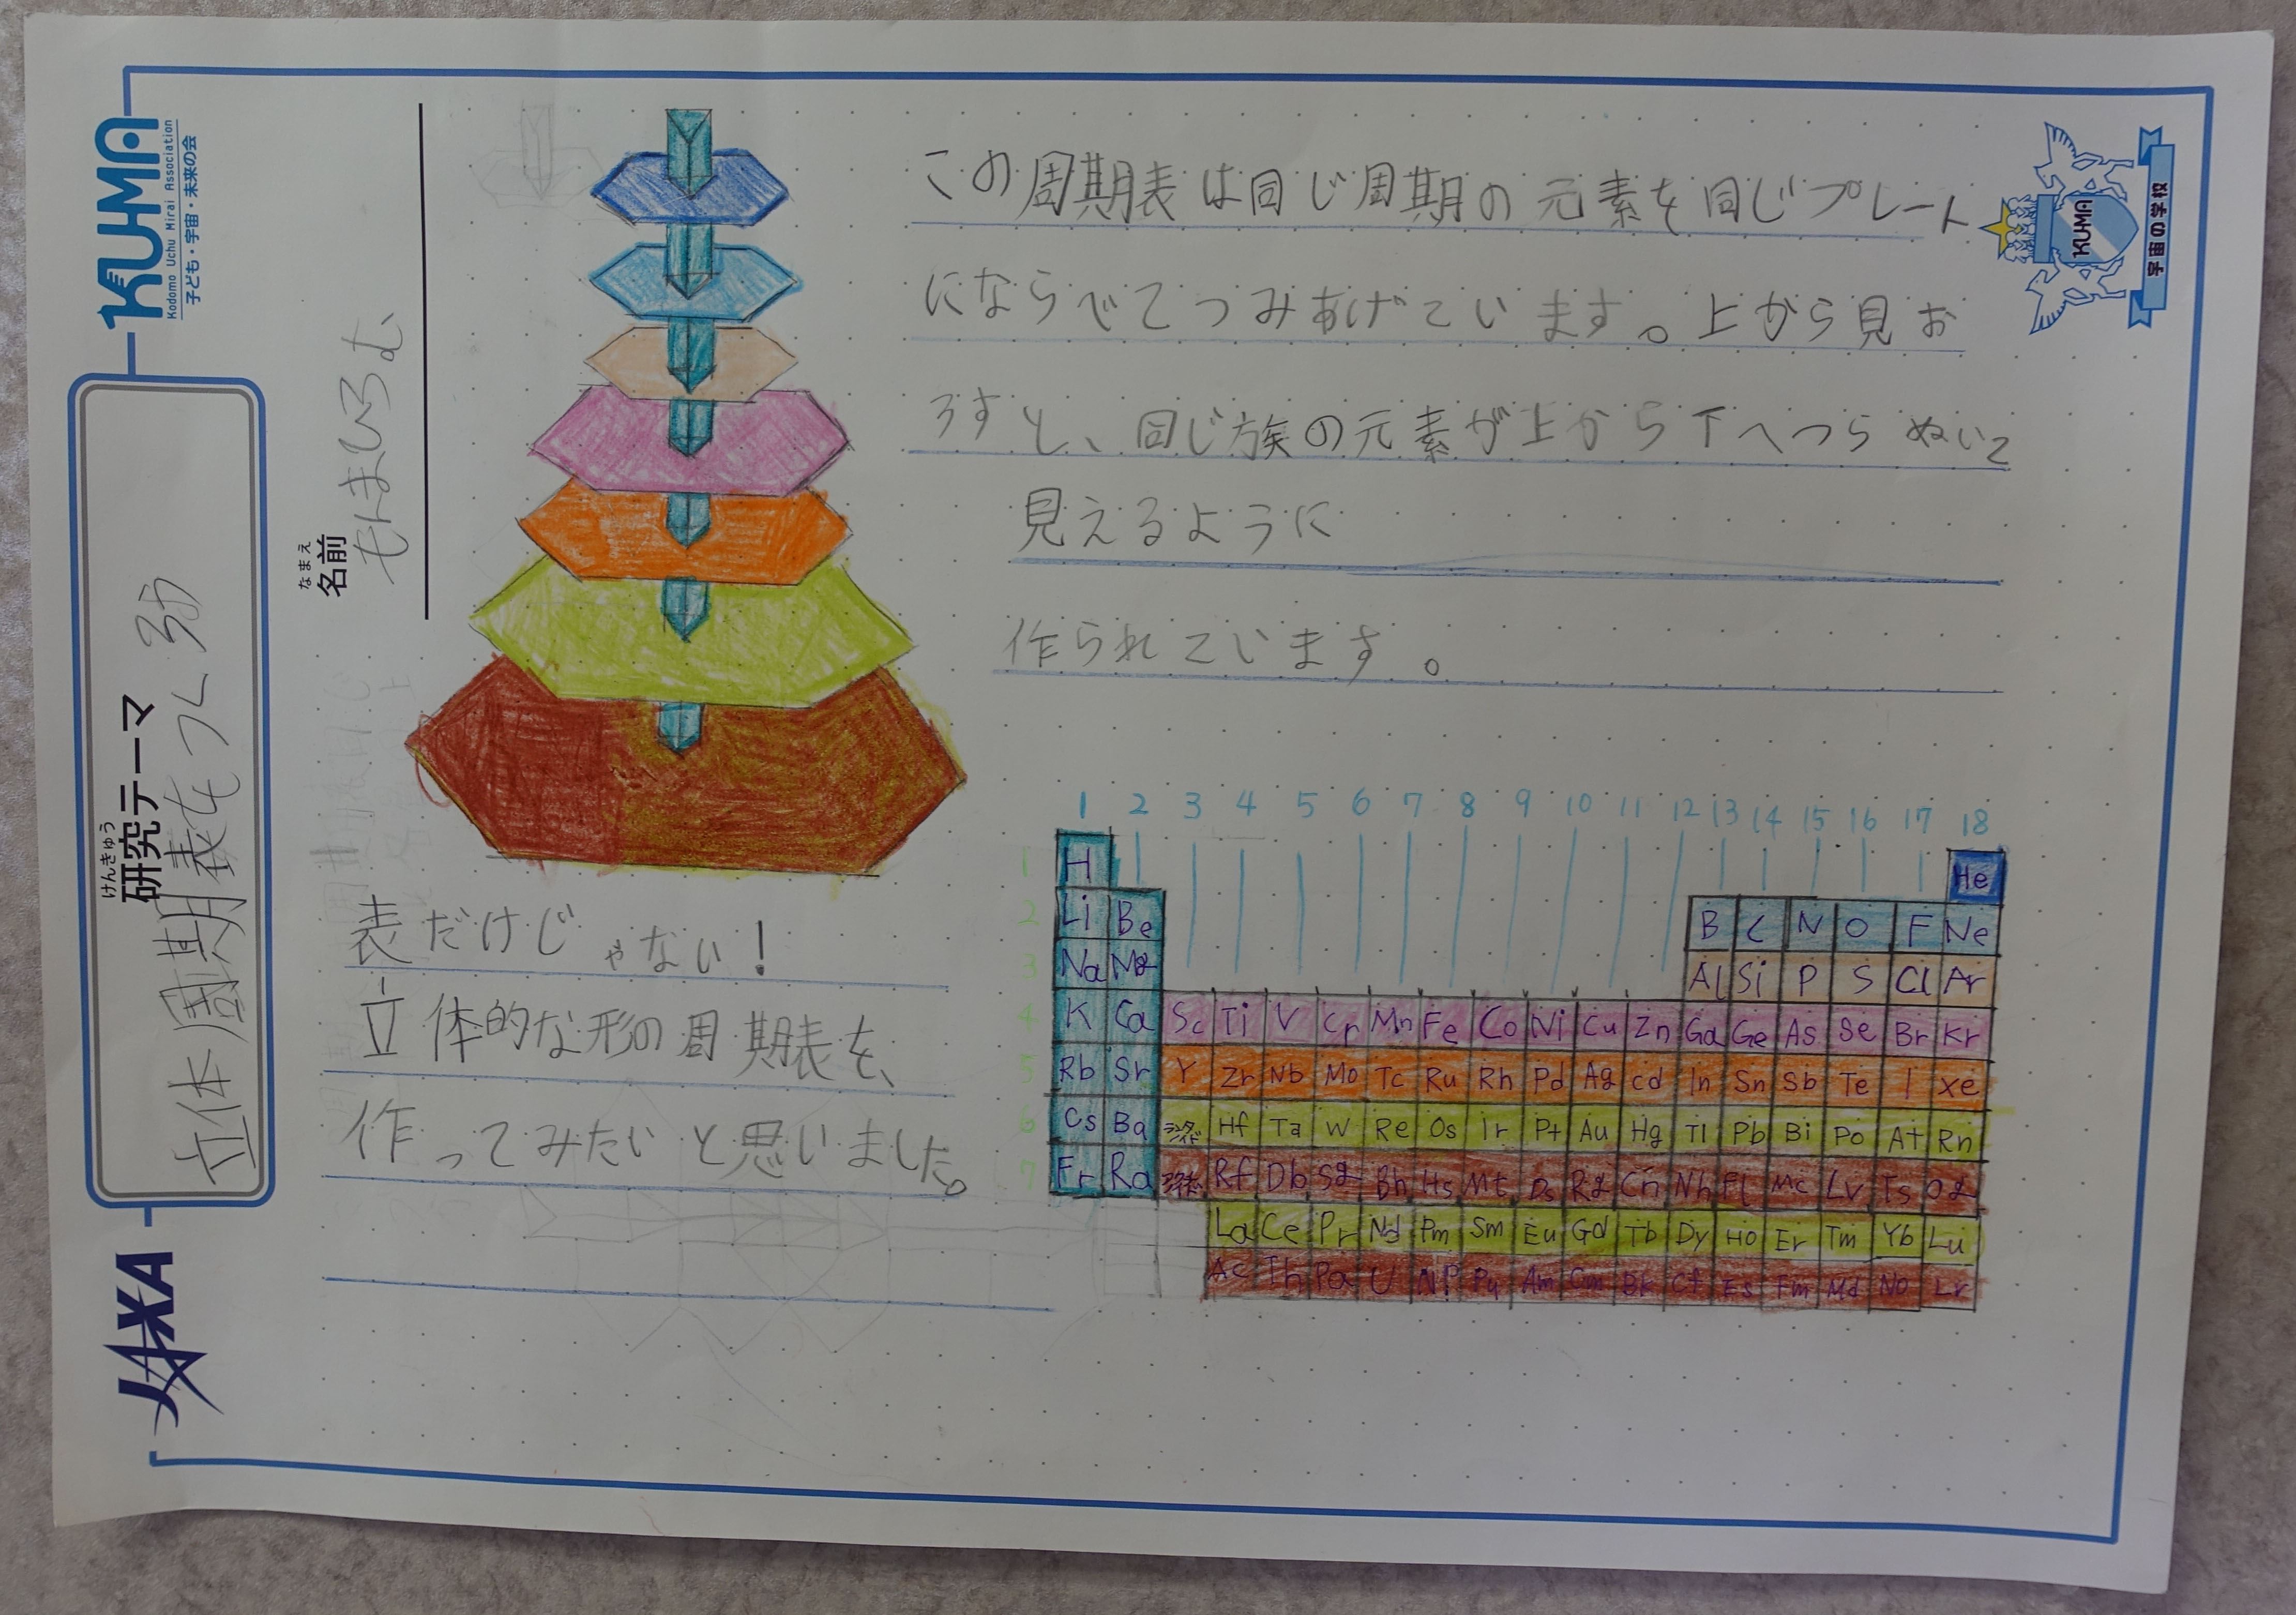 KUMA
Kodomo Uchu Mirai Association
子ども・宇宙・未来の会
けんきゅう
研究テーマ
立体周期表をつくろう
なまえ
名前
もとまひろむ
JAXA
KUMA
宇宙の学校
この周期表は同じ周期の元素を同じプレート
にならべてつみあげています。上から見お
ろすと、同じ族の元素が上から下へつらぬいて
見えるように
作られています。
表だけじゃない!
立体的な形の周期表を、
作ってみたいと思いました。
1 2 3 4 5 6 7 8 9 10 11 12 13 14 15 16 17 18
1 H He
2 Li Be B C N O F Ne
3 Na Mg Al Si P S Cl Ar
4 K Ca Sc Ti V Cr Mn Fe Co Ni Cu Zn Ga Ge As Se Br Kr
5 Rb Sr Y Zr Nb Mo Tc Ru Rh Pd Ag cd In Sn Sb Te I xe
6 Cs Ba ランタノイド Hf Ta W Re Os Ir Pt Au Hg Tl Pb Bi Po At Rn
7 Fr Ra Rf Db Sg Bh Hs Mt Ds Rg Cn Nh Fl Mc Lv Ts Og
La Ce Pr Nd Pm Sm Eu Gd Tb Dy Ho Er Tm Yb Lu
Ac Th Pa U NP Pu Am Cm Bk Cf Es Fm Md No Lr